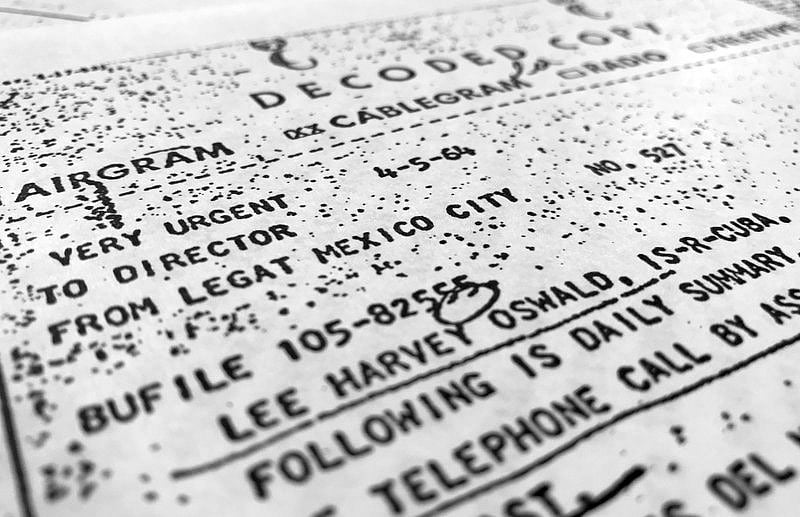 DECODED COPY
AIRGRAM XX CABLEGRAM RADIO TELETYPE
VERY URGENT 4-5-64 NO. 527
TO DIRECTOR
FROM LEGAT MEXICO CITY
BUFILE 105-82555
LEE HARVEY OSWALD, IS-R-CUBA.
FOLLOWING IS DAILY SUMMARY.
TELEPHONE CALL BY
DEL